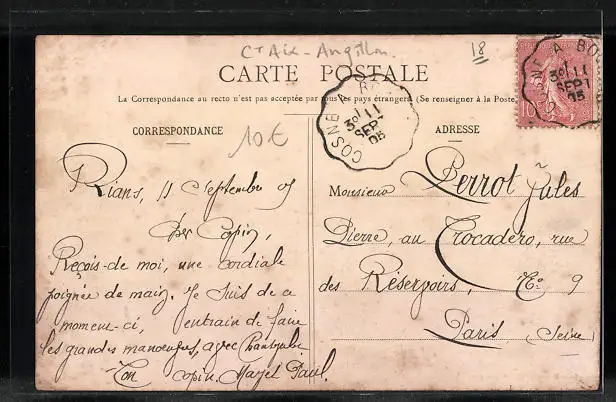 Ct Aix-Angillon
18
CARTE POSTALE
La Correspondance au recto n'est pas acceptée par tous les pays étrangers (Se renseigner à la Poste.
CORRESPONDANCE
10€
Rians, 11 Septembre 05
cher Copin,
Reçois-de moi, une cordiale
poignée de main. Je suis de ce
moment-ci, entrain de faire
les grandes manoeuvres, avec
Ton copin. Paul.
COSNE A BO
11
SEPT
05
ADRESSE
Monsieur Perrot Jules
Pierre, au Trocadéro, rue
des Réservoirs, No 9
Paris (Seine)
10
COSNE A BO
11
SEPT
05